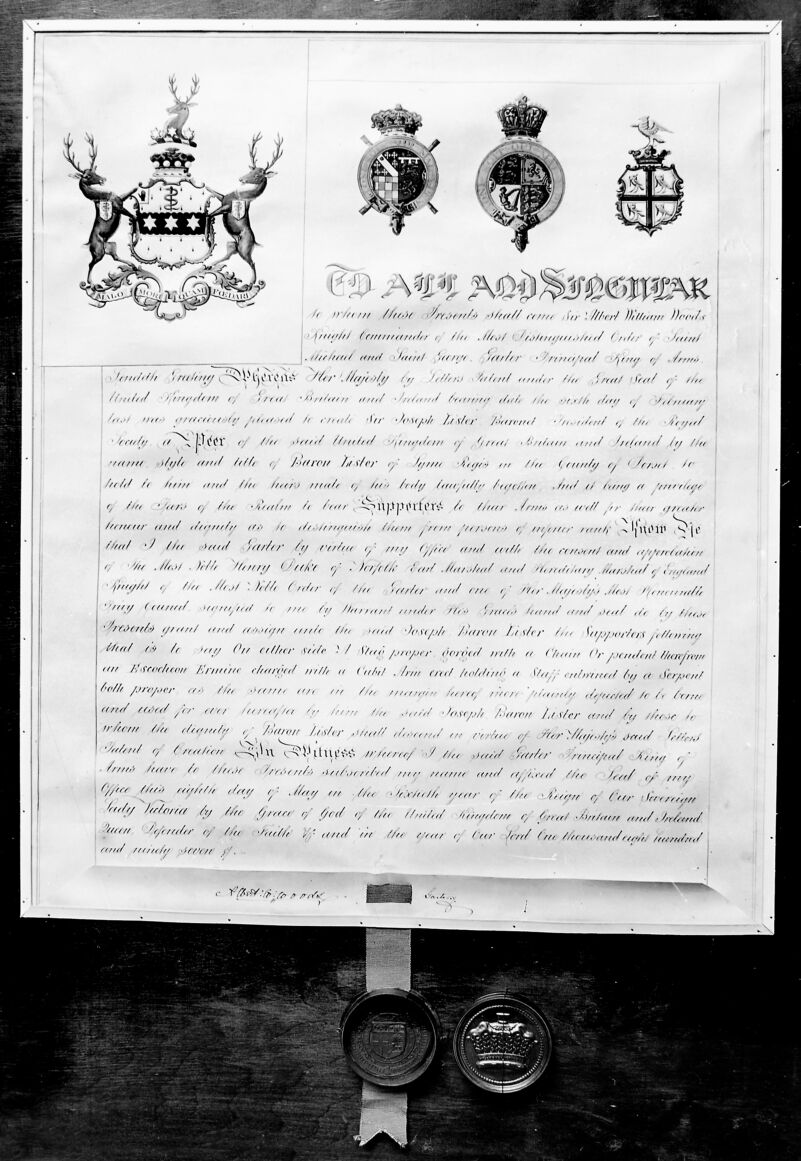 MALO MORI QUAM FŒDARI
TO ALL AND SINGULAR
to whom these Presents shall come Sir Albert William Woods
Knight Commander of the Most Distinguished Order of Saint
Michael and Saint George, Garter Principal King of Arms,
Sendeth Greeting Whereas Her Majesty by Letters Patent under the Great Seal of the
United Kingdom of Great Britain and Ireland bearing date the sixth day of February
last was graciously pleased to create Sir Joseph Lister Baronet, President of the Royal
Society, a Peer of the said United Kingdom of Great Britain and Ireland by the
name, style and title of Baron Lister of Lyme Regis in the County of Dorset, to
hold to him and the heirs male of his body lawfully begotten, And it being a privilege
of the Peers of the Realm to bear Supporters to their Arms as well for their greater
honour and dignity as to distinguish them from persons of inferior rank Know Ye
that I the said Garter by virtue of my Office and with the consent and approbation
of The Most Noble Henry Duke of Norfolk Earl Marshal and Hereditary Marshal of England
Knight of the Most Noble Order of the Garter and one of Her Majesty's Most Honourable
Privy Council, signified to me by Warrant under His Grace's hand and seal do by these
Presents grant and assign unto the said Joseph Baron Lister the Supporters following
that is to say On either side A Stag proper, gorged with a Chain Or pendent therefrom
an Escocheon Ermine charged with a Cubit Arm erect holding a Staff entwined by a Serpent
both proper, as the same are in the margin hereof more plainly depicted to be borne
and used for ever hereafter by him the said Joseph Baron Lister and by those to
whom the dignity of Baron Lister shall descend in virtue of Her Majesty's said Letters
Patent of Creation In Witness whereof I the said Garter Principal King of
Arms have to these Presents subscribed my name and affixed the Seal of my
Office this eighth day of May in the Sixtieth year of the Reign of Our Sovereign
Lady Victoria by the Grace of God of the United Kingdom of Great Britain and Ireland
Queen, Defender of the Faith &c and in the year of Our Lord One thousand eight hundred
and ninety seven &c.
Albert W. Woods Garter